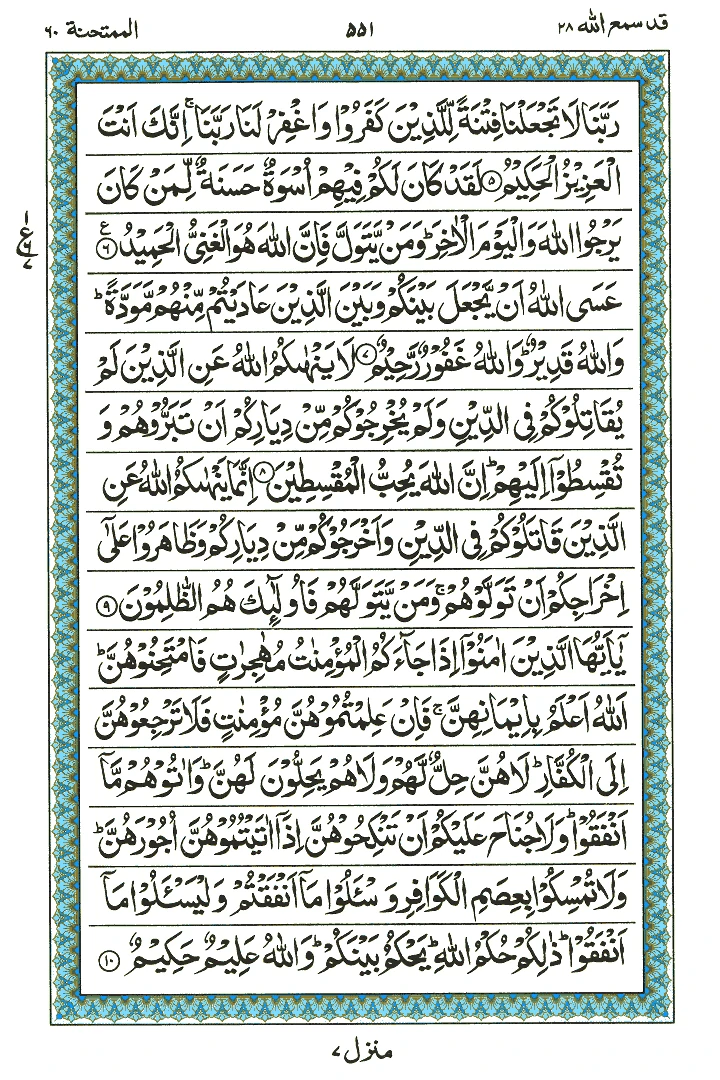 قد سمع الله ٢٨ ٥٥١ الممتحنة ٦٠
رَبَّنَا لَا تَجْعَلْنَا فِتْنَةً لِّلَّذِيْنَ كَفَرُوْا وَاغْفِرْ لَنَا رَبَّنَا ۚ اِنَّكَ اَنْتَ
الْعَزِيْزُ الْحَكِيْمُ ۝٥ لَقَدْ كَانَ لَكُمْ فِيْهِمْ اُسْوَةٌ حَسَنَةٌ لِّمَنْ كَانَ
يَرْجُوا اللّٰهَ وَالْيَوْمَ الْاٰخِرَ ؕ وَمَنْ يَّتَوَلَّ فَاِنَّ اللّٰهَ هُوَ الْغَنِىُّ الْحَمِيْدُ ۝٦ ع
عَسَى اللّٰهُ اَنْ يَّجْعَلَ بَيْنَكُمْ وَبَيْنَ الَّذِيْنَ عَادَيْتُمْ مِّنْهُمْ مَّوَدَّةً ؕ
وَاللّٰهُ قَدِيْرٌ ؕ وَاللّٰهُ غَفُوْرٌ رَّحِيْمٌ ۝٧ لَا يَنْهٰىكُمُ اللّٰهُ عَنِ الَّذِيْنَ لَمْ
يُقَاتِلُوْكُمْ فِى الدِّيْنِ وَلَمْ يُخْرِجُوْكُمْ مِّنْ دِيَارِكُمْ اَنْ تَبَرُّوْهُمْ وَ
تُقْسِطُوْۤا اِلَيْهِمْ ؕ اِنَّ اللّٰهَ يُحِبُّ الْمُقْسِطِيْنَ ۝٨ اِنَّمَا يَنْهٰىكُمُ اللّٰهُ عَنِ
الَّذِيْنَ قَاتَلُوْكُمْ فِى الدِّيْنِ وَاَخْرَجُوْكُمْ مِّنْ دِيَارِكُمْ وَظَاهَرُوْا عَلٰٓى
اِخْرَاجِكُمْ اَنْ تَوَلَّوْهُمْ ۚ وَمَنْ يَّتَوَلَّهُمْ فَاُولٰٓئِكَ هُمُ الظّٰلِمُوْنَ ۝٩
يٰۤاَيُّهَا الَّذِيْنَ اٰمَنُوْۤا اِذَا جَآءَكُمُ الْمُؤْمِنٰتُ مُهٰجِرٰتٍ فَامْتَحِنُوْهُنَّ ؕ
اَللّٰهُ اَعْلَمُ بِاِيْمَانِهِنَّ ۚ فَاِنْ عَلِمْتُمُوْهُنَّ مُؤْمِنٰتٍ فَلَا تَرْجِعُوْهُنَّ
اِلَى الْكُفَّارِ ؕ لَا هُنَّ حِلٌّ لَّهُمْ وَلَا هُمْ يَحِلُّوْنَ لَهُنَّ ؕ وَاٰتُوْهُمْ مَّاۤ
اَنْفَقُوْا ؕ وَلَا جُنَاحَ عَلَيْكُمْ اَنْ تَنْكِحُوْهُنَّ اِذَاۤ اٰتَيْتُمُوْهُنَّ اُجُوْرَهُنَّ ؕ
وَلَا تُمْسِكُوْا بِعِصَمِ الْكَوَافِرِ وَ سْئَلُوْا مَاۤ اَنْفَقْتُمْ وَلْيَسْئَلُوْا مَاۤ
اَنْفَقُوْا ؕ ذٰلِكُمْ حُكْمُ اللّٰهِ ؕ يَحْكُمُ بَيْنَكُمْ ؕ وَاللّٰهُ عَلِيْمٌ حَكِيْمٌ ۝١٠
١
ع٦
٧
منزل ٧